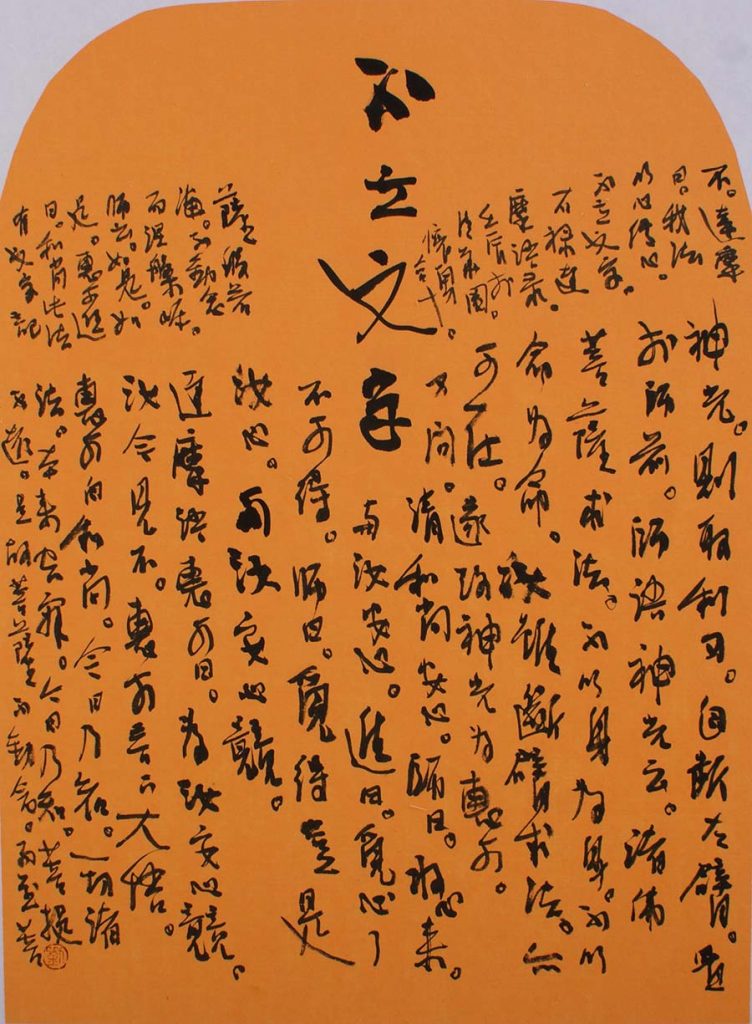 不立文字
神光。則取利刀。自斷左臂。置
於師前。師語神光云。諸佛
菩薩求法。不以身為身。不以
命為命。汝雖斷臂求法。亦
可在。遂改神光為惠可。
又問。請和尚安心。師曰。將心來。
與汝安心。進曰。覓心了
不可得。師曰。覓得豈是
汝心。與汝安心竟。
達摩語惠可曰。為汝安心竟。
汝今見不。惠可言下大悟。
惠可白和尚。今日乃知。一切諸
法。本來空寂。今日乃知。菩提
不遠。是故菩薩不動念。而至菩
薩般若
海。不動念
而涅槃岸。
師云。如是。如
是。惠可進
曰。和尚此法
有文字記
不。達摩
曰。我法
以心傳心。
不立文字。
右錄達
摩語錄。
壬辰於
園。
合十。